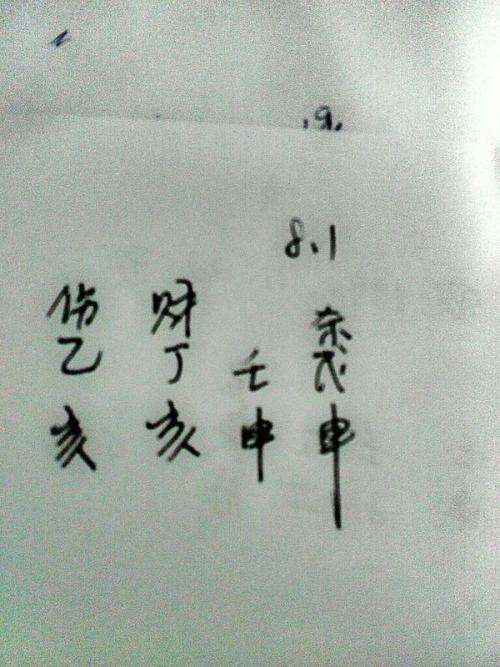 8.1
伤乙亥
财丁亥
壬申
杀戊申